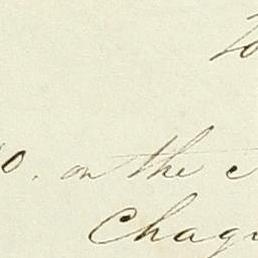 to
0. on the
Chag